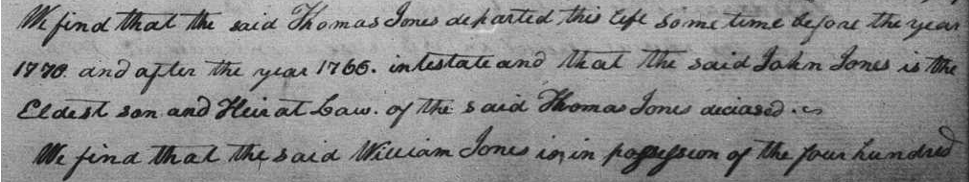 We find that the said Thomas Jones departed this life some time before the year
1770. and after the year 1766. intestate and that the said John Jones is the
Eldest son and Heir at Law. of the said Thomas Jones deciased.
We find that the said William Jones is, in possession of the four hundred